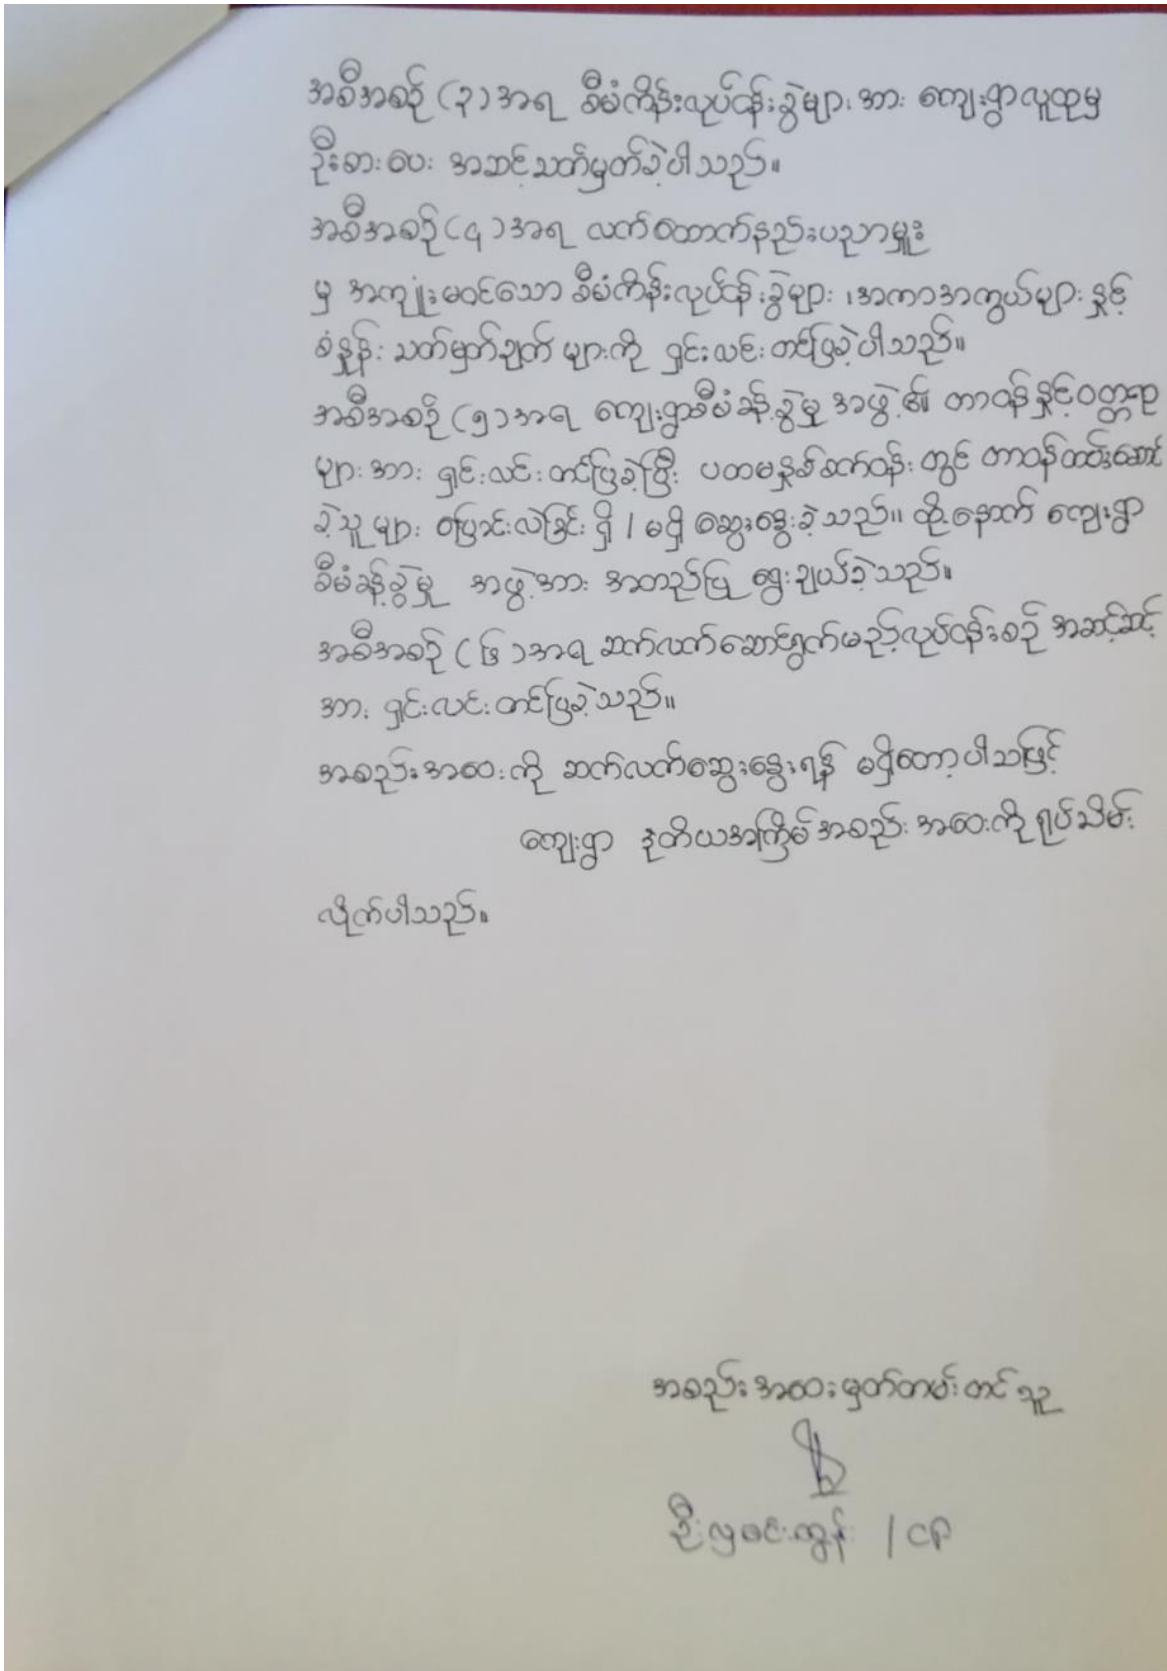 အစီအစဉ် (၃) အရ စီမံကိန်းလုပ်ငန်းခွဲများအား ကျေးရွာလူထုမှ
ဦးစားပေး အဆင့်သတ်မှတ်ခဲ့ပါသည်။
အစီအစဉ် (၄) အရ လက်ထောက်နည်းပညာမှူး
မှ အကျုံးမဝင်သော စီမံကိန်းလုပ်ငန်းခွဲများ ၊အကာအကွယ်များ နှင့်
စံနှုန်း သတ်မှတ်ချက် များကို ရှင်းလင်းတင်ပြခဲ့ပါသည်။
အစီအစဉ် (၅) အရ ကျေးရွာစီမံခန့်ခွဲမှု အဖွဲ့၏ တာဝန်နှင့်ဝတ္တရား
များအား ရှင်းလင်းတင်ပြခဲ့ပြီး ပထမနှစ်စက်ဝန်းတွင် တာဝန်ထမ်းဆောင်
ခဲ့သူများ ပြောင်းလဲခြင်း ရှိ / မရှိ ဆွေးနွေးခဲ့သည်။ ထို့နောက် ကျေးရွာ
စီမံခန့်ခွဲမှု အဖွဲ့အား အတည်ပြု ရွေးချယ်ခဲ့သည်။
အစီအစဉ် (၆) အရ ဆက်လက်ဆောင်ရွက်မည့်လုပ်ငန်းစဉ် အဆင့်ဆင့်
အား ရှင်းလင်းတင်ပြခဲ့သည်။
အစည်းအဝေးကို ဆက်လက်ဆွေးနွေးရန် မရှိတော့ပါသဖြင့်
ကျေးရွာ ဒုတိယအကြိမ်အစည်းအဝေးကို ရုပ်သိမ်း
လိုက်ပါသည်။
အစည်းအဝေးမှတ်တမ်းတင်သူ
ဦးလှမင်းထွန်း / CF